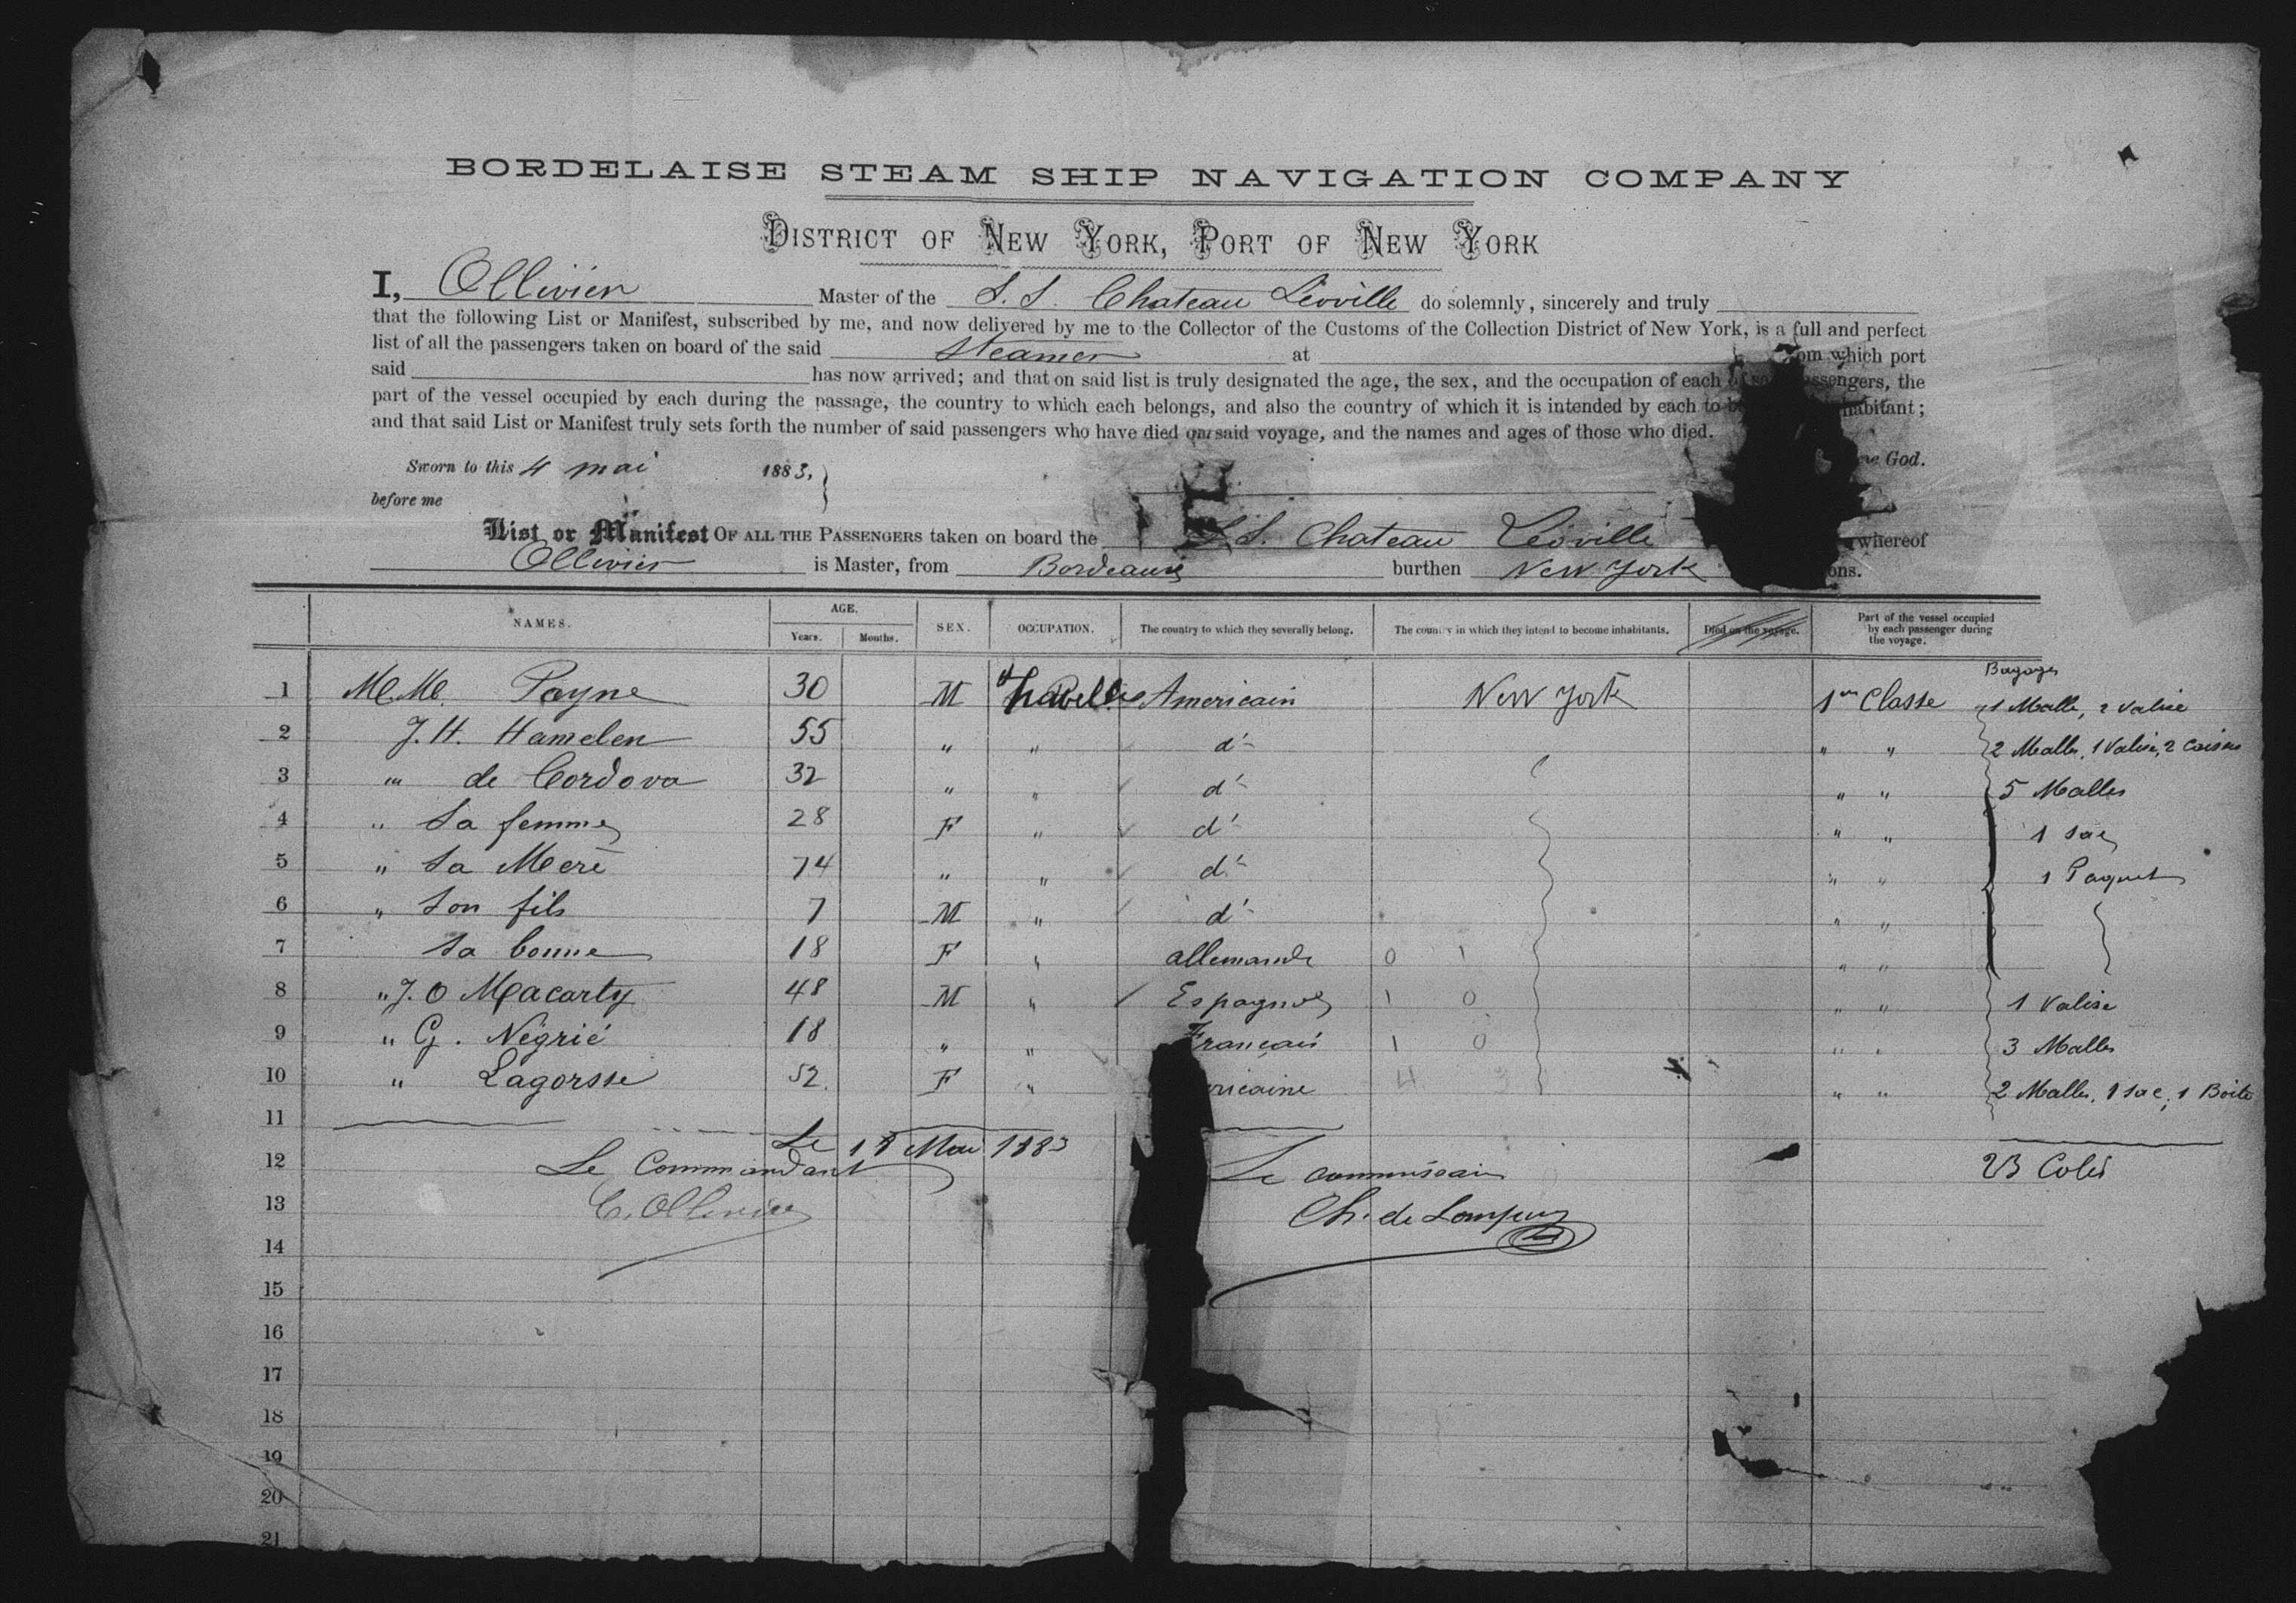 BORDELAISE STEAM SHIP NAVIGATION COMPANY
DISTRICT OF NEW YORK, PORT OF NEW YORK
I, Ollivier Master of the S.S. Chateau Léoville do solemnly, sincerely and truly
that the following List or Manifest, subscribed by me, and now delivered by me to the Collector of the Customs of the Collection District of New York, is a full and perfect
list of all the passengers taken on board of the said Steamer at from which port
said has now arrived; and that on said list is truly designated the age, the sex, and the occupation of each of said passengers, the
part of the vessel occupied by each during the passage, the country to which each belongs, and also the country of which it is intended by each to be habitant;
and that said List or Manifest truly sets forth the number of said passengers who have died on said voyage, and the names and ages of those who died.
God.
Sworn to this 4 mai 1883,
before me
List or Manifest OF ALL THE PASSENGERS taken on board the S.S. Chateau Léoville whereof
Ollivier is Master, from Bordeaux burthen New York ons.
NAMES. AGE. Years. Months. SEX. OCCUPATION. The country to which they severally belong. The country in which they intend to become inhabitants. Died on the voyage. Part of the vessel occupied by each passenger during the voyage.
Bagages
1 M.M. Payne 30 M Americain New York 1ere Classe 1 Malle, 2 Valise
2 J. H. Hamelen 55 " " d° " " 2 Malles, 1 Valise, 2 Caisses
3 " de Cordova 32 " " d° " " 5 Malles
4 " Sa femme 28 F " d° " " 1 sac
5 " Sa Mere 74 " " d° " " 1 Paquet
6 " Son fils 7 M " d° " "
7 Sa bonne 18 F " allemande 0 1 " "
8 " J. O Macarty 48 M " Espagnol 1 0 " " 1 Valise
9 " G. Négrié 18 " " Français 1 0 " " 3 Malles
10 " Lagorsse 52 F " ricaine 4 3 " " 2 Malles, 1 sac, 1 Boite
11
Le Mai 1883
12 Le Commandant Le commissaire 23 Colis
13 C. Ollivier Ch. de
14
15
16
17
18
19
20
21